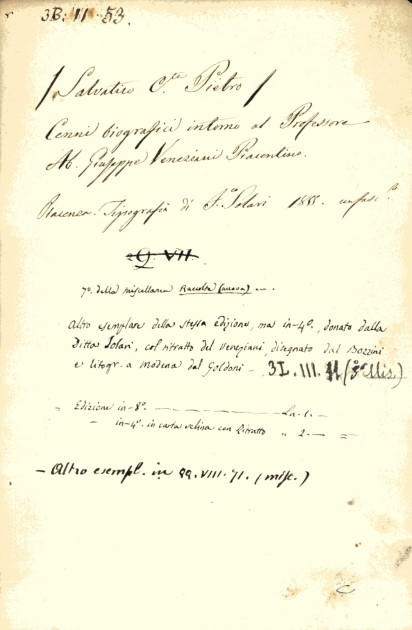 3B. II. 53.
/ Salvatico C.te Pietro /
Cenni biografici intorno al Professore
Ab. Giuseppe Veneziani Piacentino.
Piacenza. Tipografia di F. Solari
Q. VII.
7º della miscellanea Raccolta (nuova) —.
Altro esemplare della stessa edizione, ma in-4º, donato dalla
Ditta Solari, col ritratto del Veneziani, disegnato dal Bozzini
e litogr. a Modena dal Goldoni — 3L. III. (3ª Mis.)
„ Edizione in-8º. — Ln. 1. —
— in-4º. in carta velina con Ritratto „ 2. — =
— Altro esempl. in QQ. VIII. 71. (misc.)
C